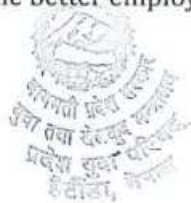 he better employ
बागमती प्रदेश सरकार
युवा तथा खेलकुद मन्त्रालय
प्रदेश युवा परिषद्
हेटौंडा, नेपाल